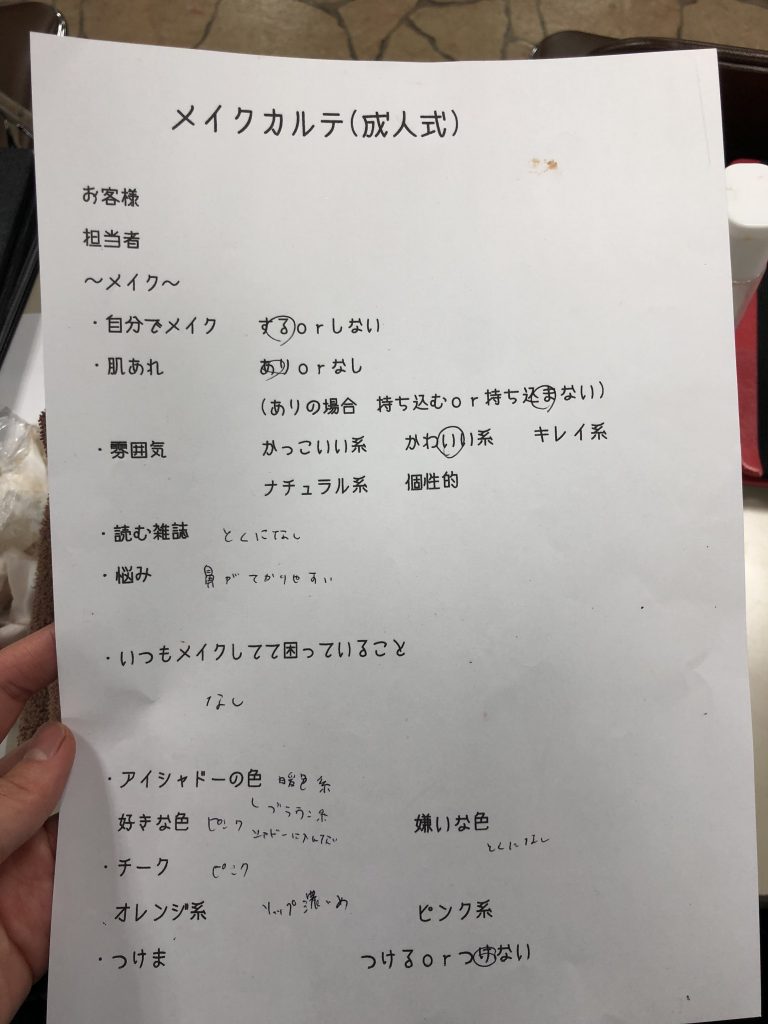 メイクカルテ(成人式)
お客様
担当者
～メイク～
・自分でメイク するorしない
・肌あれ ありorなし
(ありの場合 持ち込むor持ち込まない)
・雰囲気 かっこいい系 かわいい系 キレイ系
ナチュラル系 個性的
・読む雑誌 とくになし
・悩み 鼻がてかりやすい
・いつもメイクしてて困っていること
なし
・アイシャドーの色 暖色系
ブラウン系
好きな色 ピンク 嫌いな色
とくになし
・チーク ピンク
オレンジ系 リップ濃いめ ピンク系
・つけま つけるorつけない